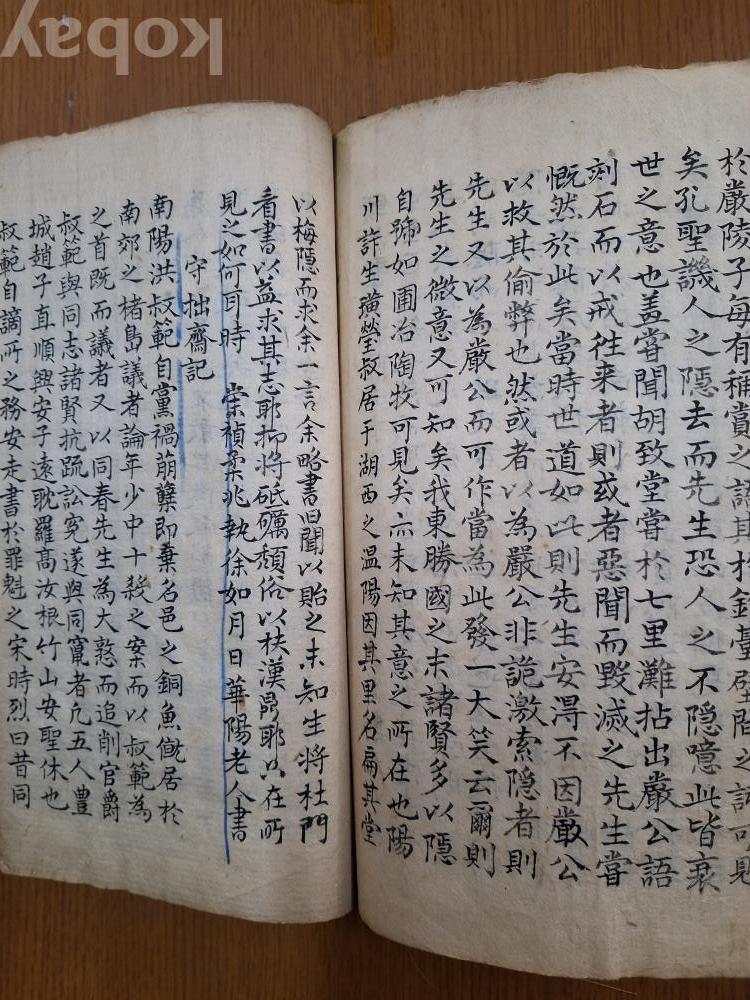 於嚴陵子每有稱賞之語其於釣臺壁間之詩可見
矣孔聖譏人之隱去而先生恐人之不隱噫此皆衰
世之意也盖嘗聞胡致堂嘗於七里灘拈出嚴公語
刻石而以戒往来者則或者惡聞而毀滅之先生嘗
慨然於此矣當時世道如此則先生安得不因嚴公
以救其偷弊也然或者以為嚴公非詭激索隐者則
先生又以為嚴公而可作當為此發一大笑云爾則
先生之微意又可知矣我東勝國之末諸賢多以隱
自號如圃冶陶牧可見矣亦未知其意之所在也陽
川許生璜瑩叔居于湖西之温陽因其里名扁其堂
以梅隱而求余一言余略書旧聞以貽之未知生将杜門
看書以益求其志耶抑将砥礪頹俗以扶漢鼎耶以在所
見之如何耳時 崇禎柔兆執徐如月日華陽老人書
守拙齋記
南陽洪叔範自黨禍萠蘖即棄名邑之銅魚僦居於
南郊之楮島議者論年少中十殺之案而以叔範為
之首既而議者又以同春先生為大憝而追削官爵
叔範與同志諸賢抗疏訟寃遂與同竄者凢五人豊
城趙子直順興安子遠耽羅高汝根竹山安聖休也
叔範自謫所之務安走書於罪魁之宋時烈曰昔同
kobay